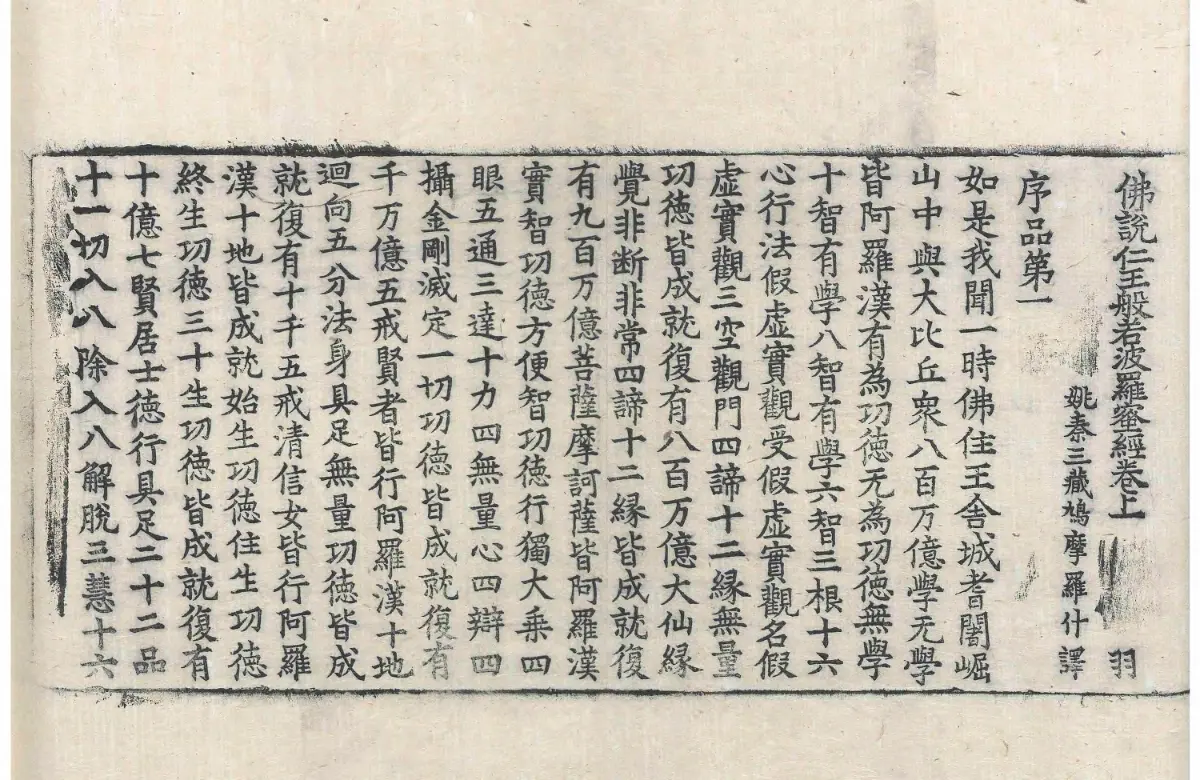 佛說仁王般若波羅蜜經卷上 羽
姚秦三藏鳩摩羅什譯
序品第一
如是我聞一時佛住王舍城耆闍崛
山中與大比丘衆八百万億學无學
皆阿羅漢有為功徳无為功徳無學
十智有學八智有學六智三根十六
心行法假虛實觀受假虛實觀名假
虛實觀三空觀門四諦十二縁無量
功徳皆成就復有八百万億大仙縁
覺非断非常四諦十二縁皆成就復
有九百万億菩薩摩訶薩皆阿羅漢
實智功徳方便智功徳行獨大乘四
眼五通三達十力四無量心四辯四
攝金剛滅定一切功徳皆成就復有
千万億五戒賢者皆行阿羅漢十地
迴向五分法身具足無量功徳皆成
就復有十千五戒清信女皆行阿羅
漢十地皆成就始生功徳住生功徳
終生功徳三十生功徳皆成就復有
十億七賢居士徳行具足二十二品
十一切入八除入八解脫三慧十六